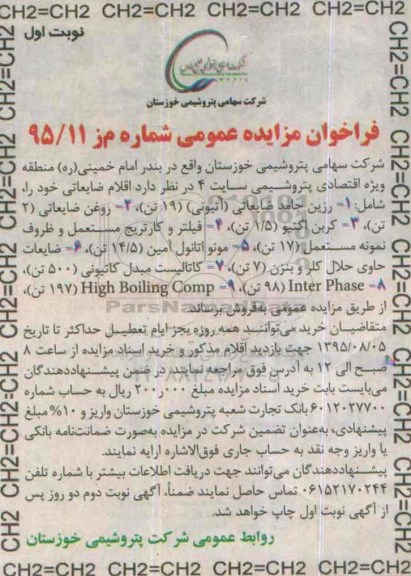 CH2=CH2 CH2=CH2 CH2=CH2 CH2=CH2
نوبت اول
شرکت سهامی پتروشیمی خوزستان
فراخوان مزایده عمومی شماره م‌ز ۹۵/۱۱
شرکت سهامی پتروشیمی خوزستان واقع در بندر امام خمینی(ره) منطقه
ویژه اقتصادی پتروشیمی سایت ۴ در نظر دارد اقلام ضایعاتی خود را،
شامل: ۱- رزین چرب ضایعاتی (آنیونی) (۱۹ تن)، ۲- روغن ضایعاتی (۲
تن)، ۳- کربن اکتیو (۱/۵ تن)، ۴- فیلتر و کارتریج مستعمل و ظروف
نمونه مستعمل (۱۷ تن)، ۵- مونو اتانول آمین (۱۴/۵ تن)، ۶- ضایعات
حاوی حلال کلر و بنزن (۷ تن)، ۷- کاتالیست مبدل کاتیونی (۵۰۰ تن)،
۸- Inter Phase (۹۸ تن)، ۹- High Boiling Comp (۱۹۷ تن)،
از طریق مزایده عمومی به‌فروش برساند.
متقاضیان خرید می‌توانند همه روزه بجز ایام تعطیل حداکثر تا تاریخ
۱۳۹۵/۰۸/۰۵ جهت بازدید اقلام مذکور و خرید اسناد مزایده از ساعت ۸
صبح الی ۱۲ به آدرس فوق مراجعه نمایند. در ضمن پیشنهاددهندگان
می‌بایست بابت خرید اسناد مزایده مبلغ ۲۰۰ر۰۰۰ ریال به حساب شماره
۶۰۱۲۰۲۷۷۰۰ بانک تجارت شعبه پتروشیمی خوزستان واریز و ۱۰% مبلغ
پیشنهادی، به‌عنوان تضمین شرکت در مزایده به‌صورت ضمانت‌نامه بانکی
یا واریز وجه نقد به حساب جاری فوق‌الاشاره ارایه نمایند.
پیشنهاددهندگان می‌توانند جهت دریافت اطلاعات بیشتر با شماره تلفن
۰۶۱۵۲۱۷۰۲۴۴ تماس حاصل نمایند ضمناً، آگهی نوبت دوم دو روز پس
از آگهی نوبت اول چاپ خواهد شد.
روابط عمومی شرکت پتروشیمی خوزستان
CH2=CH2 CH2=CH2 CH2=CH2 CH2=CH2